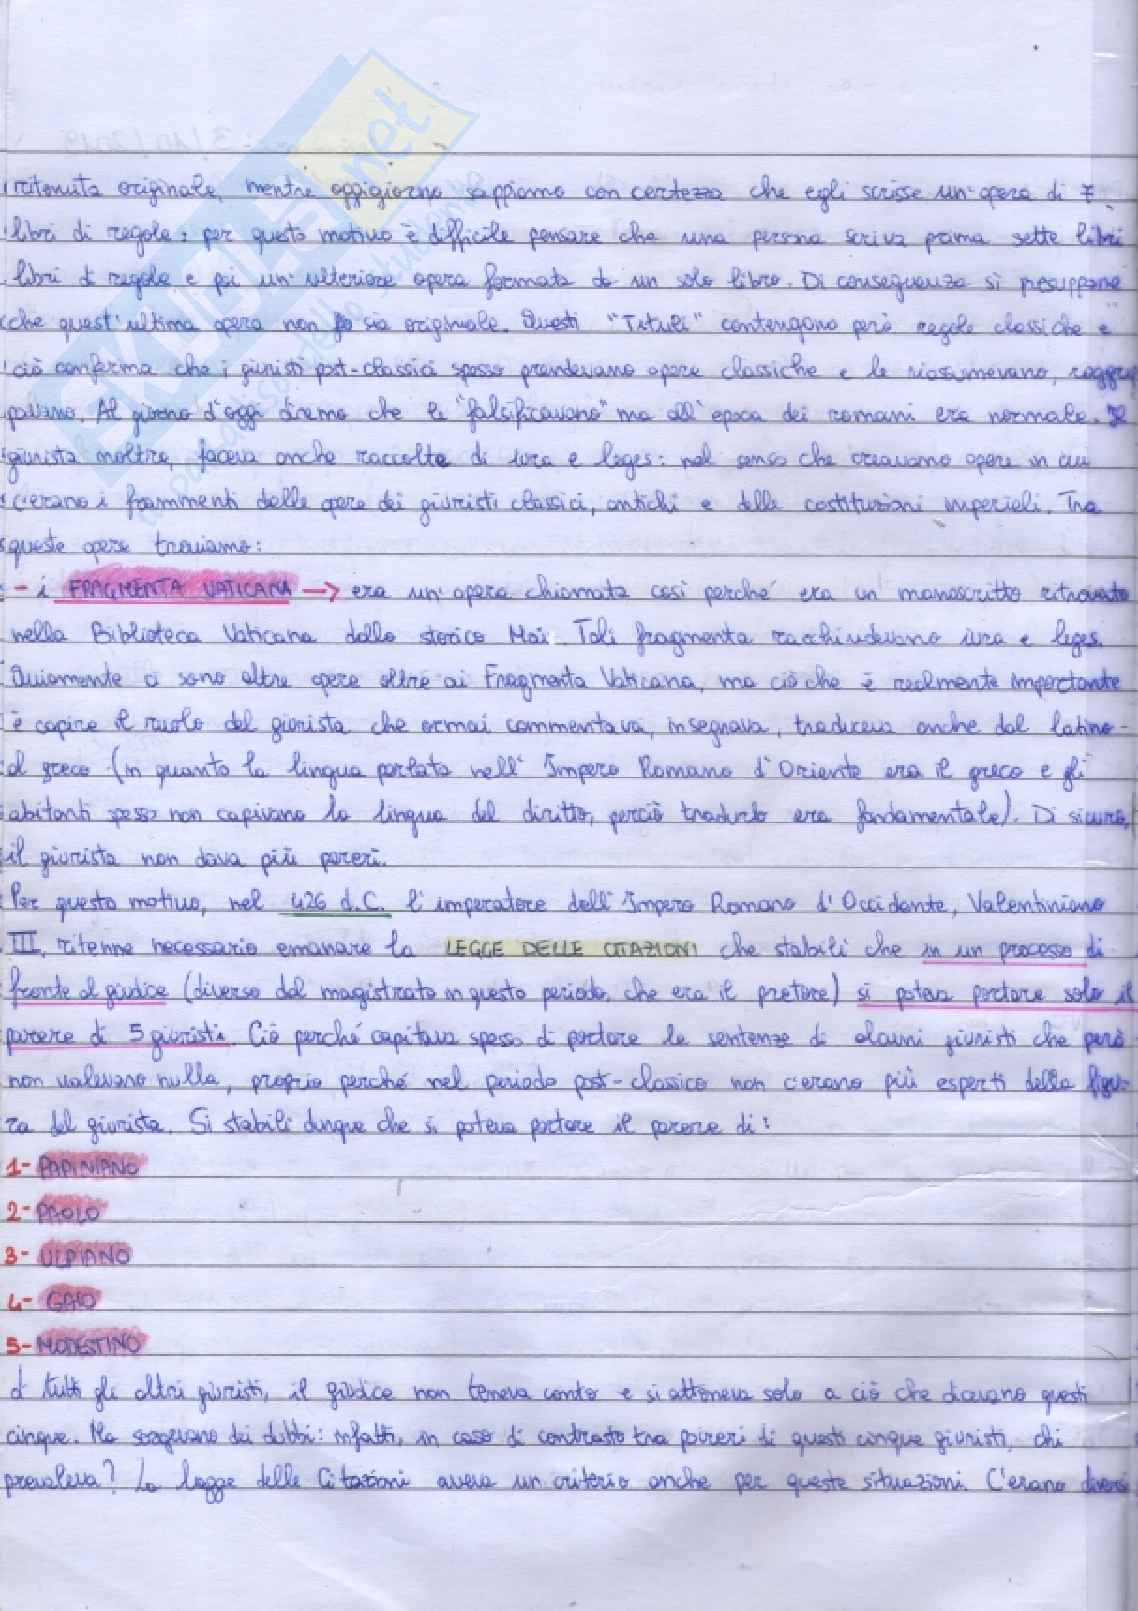 ritenuta originale, mentre oggigiorno sappiamo con certezza che egli scrisse un'opera di 7
libri di regole; per questo motivo è difficile pensare che una persona scriva prima sette libri
libri di regole e poi un'ulteriore opera formata da un solo libro. Di conseguenza si presuppone
che quest'ultima opera non sia originale. Questi "Tituli" contengono però regole classiche e
ciò conferma che i giuristi post-classici spesso prendevano opere classiche e le riassumevano, raggrup
pavano. Al giorno d'oggi diremo che le "falsificavano" ma all'epoca dei romani era normale. Il
giurista inoltre, faceva anche raccolte di iura e leges: nel senso che creavano opere in cui
c'erano i frammenti delle opere dei giuristi classici, antichi e delle costituzioni imperiali. Tra
queste opere troviamo:
- i FRAGMENTA VATICANA → era un'opera chiamata così perché era un manoscritto ritrovato
nella Biblioteca Vaticana dallo storico Mai. Tali fragmenta racchiudevano iura e leges.
Ovviamente ci sono altre opere oltre ai Fragmenta Vaticana, ma ciò che è realmente importante
è capire il ruolo del giurista che ormai commentava, insegnava, traduceva anche dal latino
al greco (in quanto la lingua parlata nell'Impero Romano d'Oriente era il greco e gli
abitanti spesso non capivano la lingua del diritto, perciò tradurlo era fondamentale). Di sicuro,
il giurista non dava più pareri.
Per questo motivo, nel 426 d.C. l'imperatore dell'Impero Romano d'Occidente, Valentiniano
III, ritenne necessario emanare la LEGGE DELLE CITAZIONI che stabilì che in un processo di
fronte al giudice (diverso dal magistrato in questo periodo, che era il pretore) si poteva portare solo il
parere di 5 giuristi. Ciò perché capitava spesso di portare le sentenze di alcuni giuristi che però
non valevano nulla, proprio perché nel periodo post-classico non c'erano più esperti della figu-
ra del giurista. Si stabilì dunque che si poteva portare il parere di:
1- PAPINIANO
2- PAOLO
3- ULPIANO
4- GAIO
5- MODESTINO
di tutti gli altri giuristi, il giudice non teneva conto e si atteneva solo a ciò che dicevano questi
cinque. Ma sorgevano dei dubbi: infatti, in caso di contrasto tra pareri di questi cinque giuristi, chi
prevaleva? La legge delle Citazioni aveva un criterio anche per queste situazioni. C'erano diversi